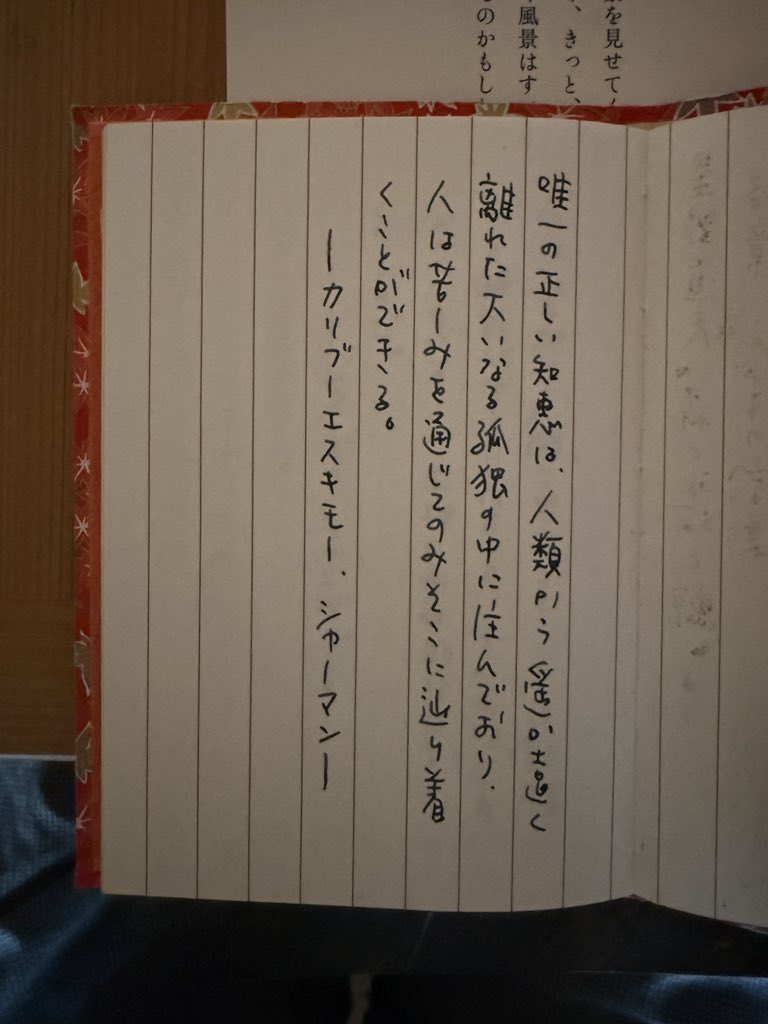 景を見せて
、きっと、
風景はす
ものかもし
唯一の正しい知恵は、人類から遙か遠く
離れた大いなる孤独の中に住んでおり、
人は苦しみを通じてのみそこに辿り着
くことができる。
ーカリブーエスキモー、シャーマンー